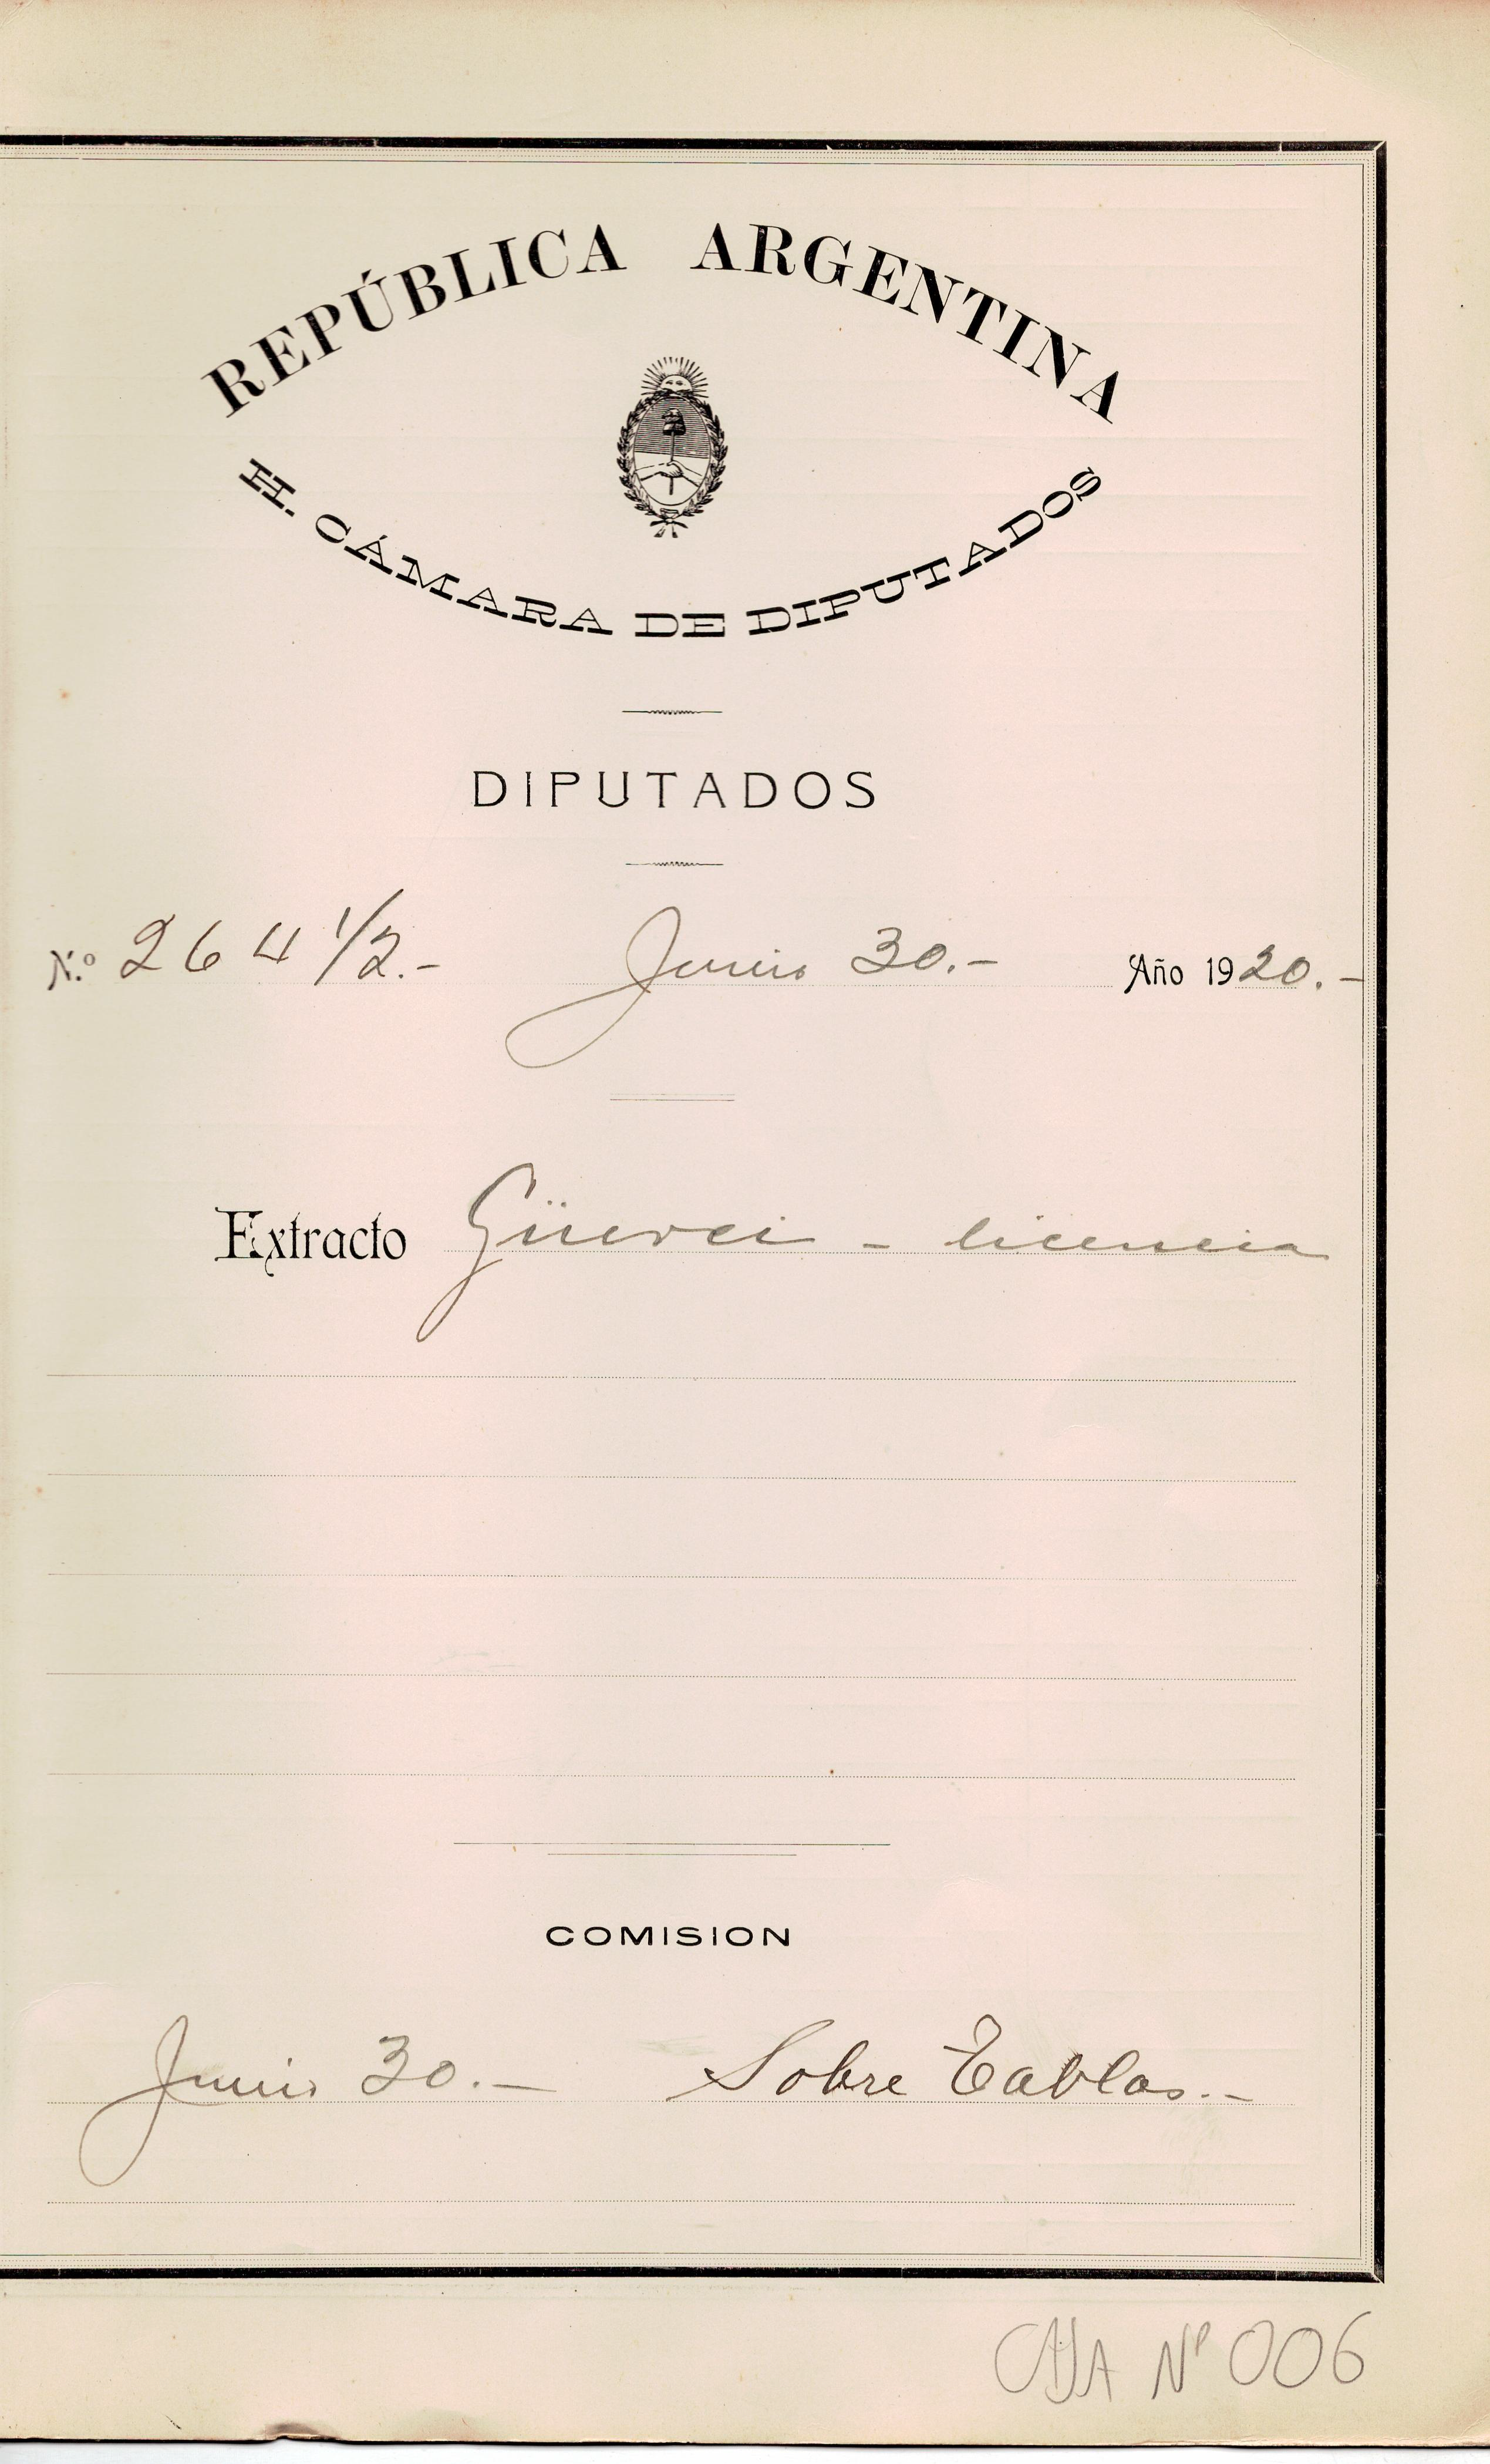 REPÚBLICA ARGENTINA
H. CÁMARA DE DIPUTADOS
DIPUTADOS
N.º 264 1/2.- Junio 30.- Año 1920.-
Extracto Güerci - licencia
COMISION
Junio 30.- Sobre Tablas.-
CAJA Nº 006